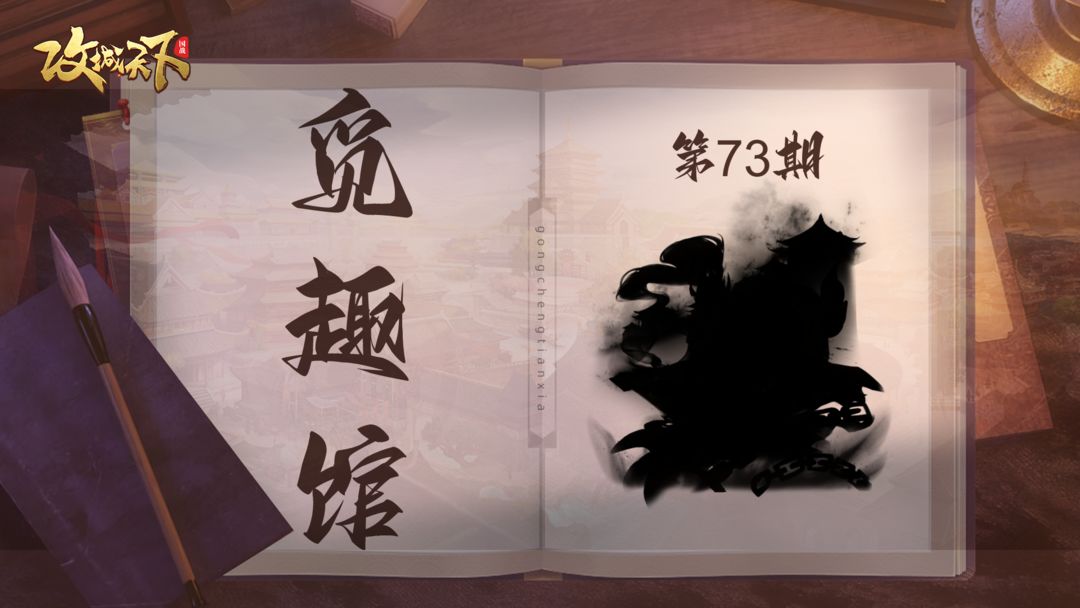 攻城天下
国战
觅趣馆
gongchengtianxia
第73期